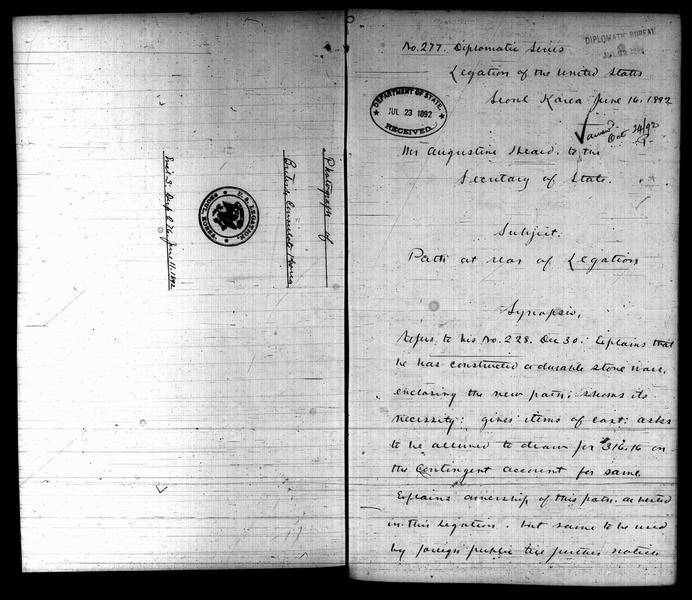 Photograph of
British Consulate Korea
U.S. LEGATION,
SEOUL, KOREA.
Incl 3. Dsp 276 June 11. 1892
No. 277. Diplomatic Series
DIPLOMATIC BUREAU
Legation of the United States
Seoul Korea June 16, 1892
DEPARTMENT OF STATE,
JUL 23 1892
RECEIVED.
Oct 24/92
Mr Augustine Heard. to the
Secretary of State.
Subject.
Path at rear of Legation
Synopsis,
Refers to his No. 228. Dec 30: Explains that
he has constructed a durable stone wall,
enclosing the new path; shows its
necessity: gives items of cost: asks
to be allowed to draw for $316.16 on
the Contingent account for same.
Explains ownership of this path. as vested
in this Legation. but same to be used
by foreign public till further notice.